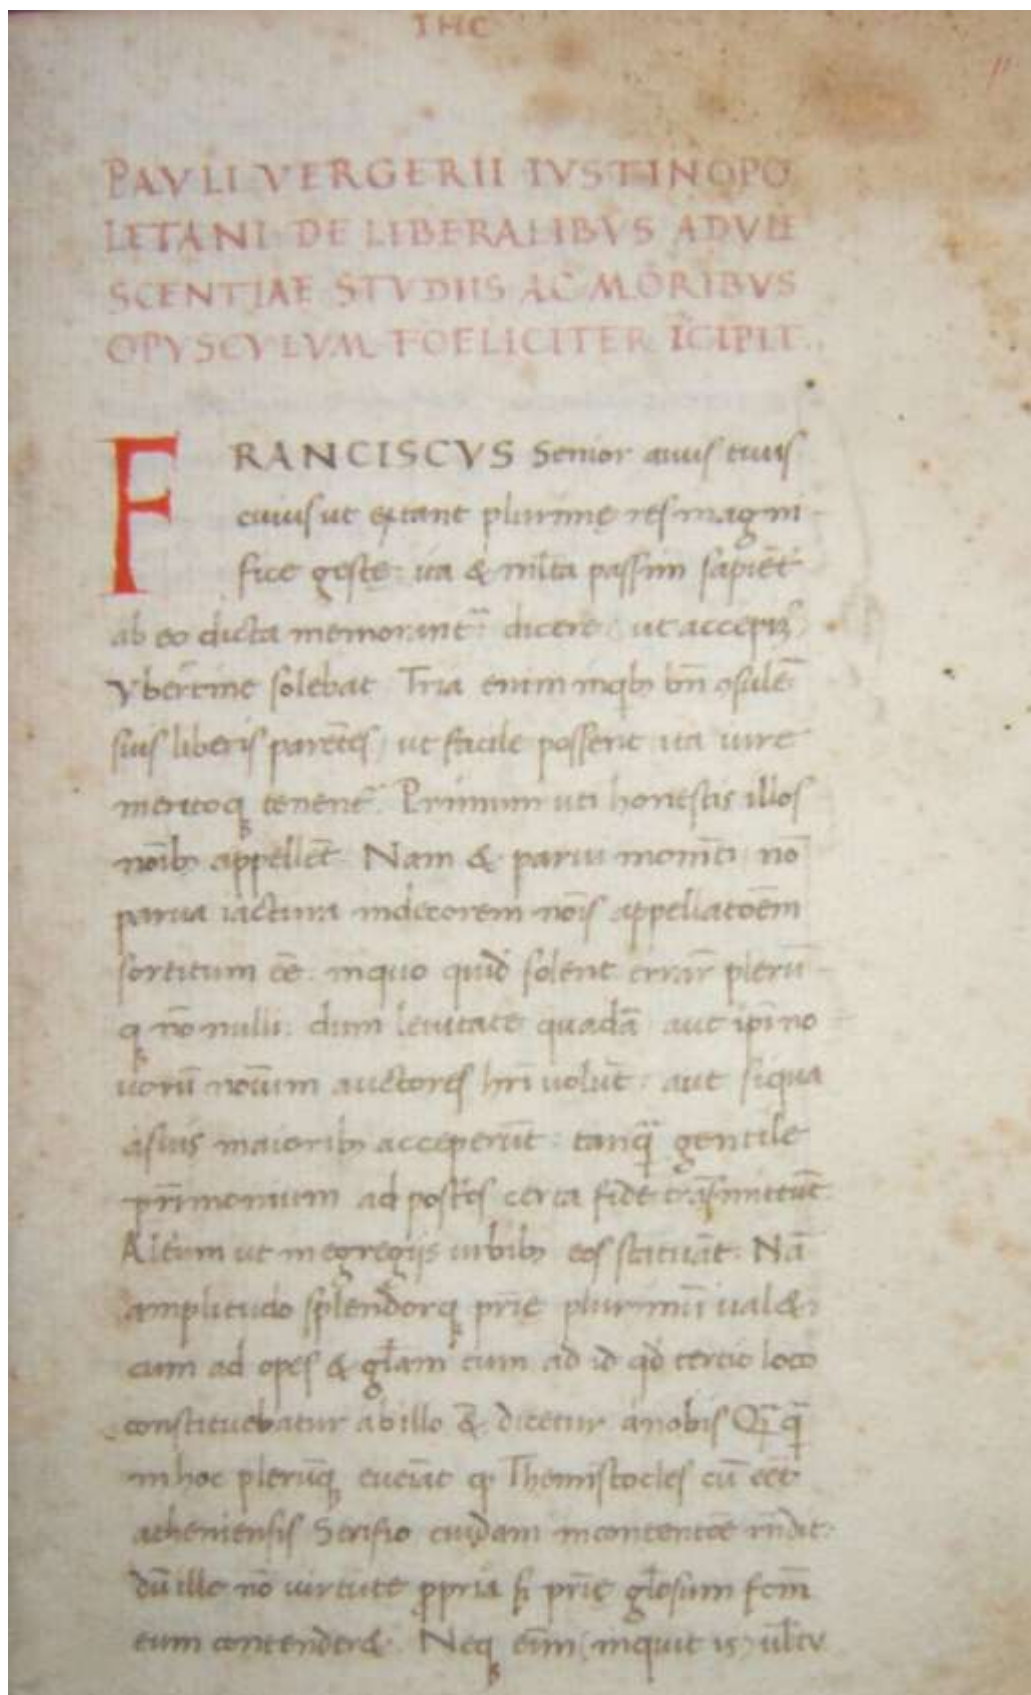 IHC
11
PAVLI VERGERII IVSTINOPO
LETANI DE LIBERALIBVS ADVLE
SCENTIAE STVDIIS AC MORIBVS
OPVSCVLVM FOELICITER ĪCIPIT.
FRANCISCVS Senior auus tuus
cuius ut extant plurimę res magni-
fice gestę: ita & ml̄ta passim sapiēt͛
ab eo dicta memorant᷑: dicere, ut accepim᷒,
Vbertine solebat. Tria enim in qb᷒ bn̄ ꝯsulēt
suis liberis parētes, ut facile possent ita iure
meritoqꝫ tenent᷑. Primum uti honestis illos
noīb᷒ appellēt. Nam & parui momēti nō
parua iactura indecorem noīs appellatoēm
sortitum eē. in quo quidē solent errar̄ pleru-
qꝫ nōnulli: dum leuitate quadā aut ip̄i no-
uorū noīum auctores hr̄i uolūt: aut siqua
a suis maiorib᷒ acceperūt: tanq̄ gentile
pr̄imonium ad post̄os certa fide trāsmittūt.
Alterum ut in egregijs urbib᷒ eos statuāt. Nā
amplitudo splendorqꝫ pr̄ie plurimū ual&:
cum ad opes & gl̄am tum ad id qd̄ tertio loco
constituebatur ab illo & dicetur a nobis Qq̄
in hoc plerūqꝫ eueīat q Themistocles cū eēt
atheniensis Serifio cuidam in contentōe rn̄dit:
dū ille nō uirtute ꝓpria sꝫ pr̄ię gl̄osum fcm̄
eum contender&. Neqꝫ eīm (inquit is)